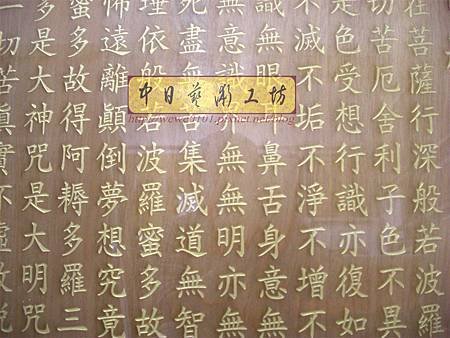 在菩薩行深般若波羅
切苦厄舍利子色不異
是色受想行識亦復如
不滅不垢不淨不增不
識無眼鼻舌身意無
無意識界無無明亦無
死盡無苦集滅道無智
埵依般若波羅蜜多故
怖遠離顛倒夢想究竟
蜜多故得阿耨多羅三
多是大神咒是大明咒
一切苦眞實不虛故說
中日藝彫工坊